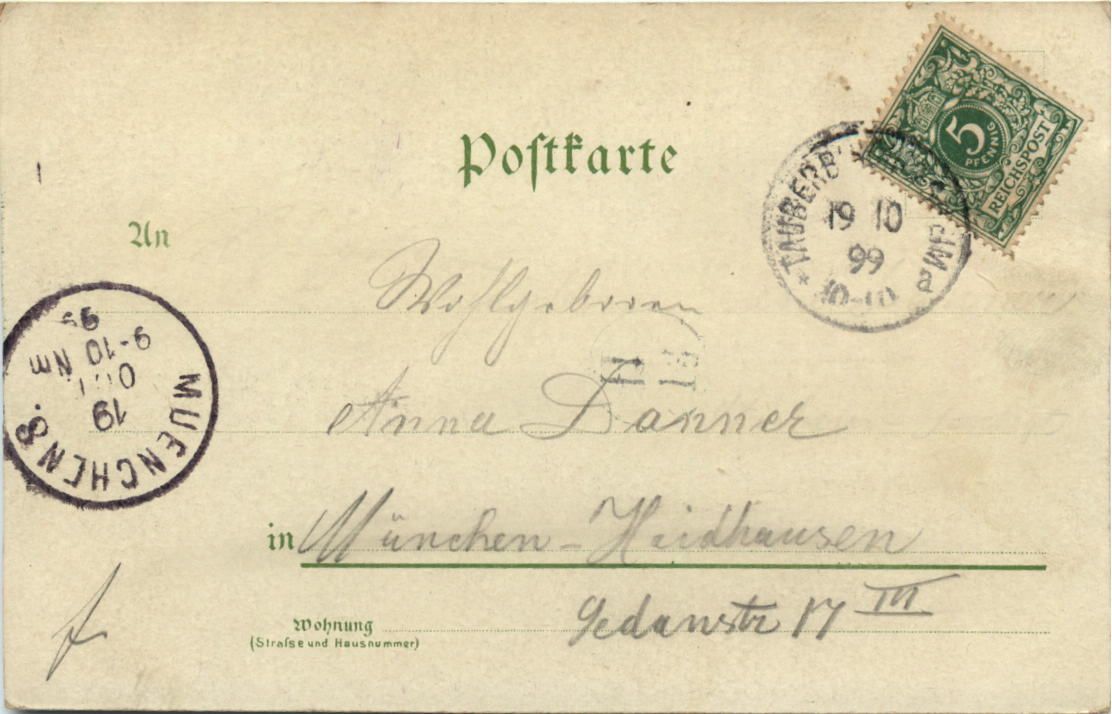 Postkarte
5
PFENNIG
REICHSPOST
TAUBERB EIM a
19 10
99
10-10
An
Wohlgeboren
Anna Danner
MUENCHEN 8.
19
OCT.
9-10 Nm
99
in München-Haidhausen
Wohnung
(Strasse und Hausnummer)
Sedanstr 17 III